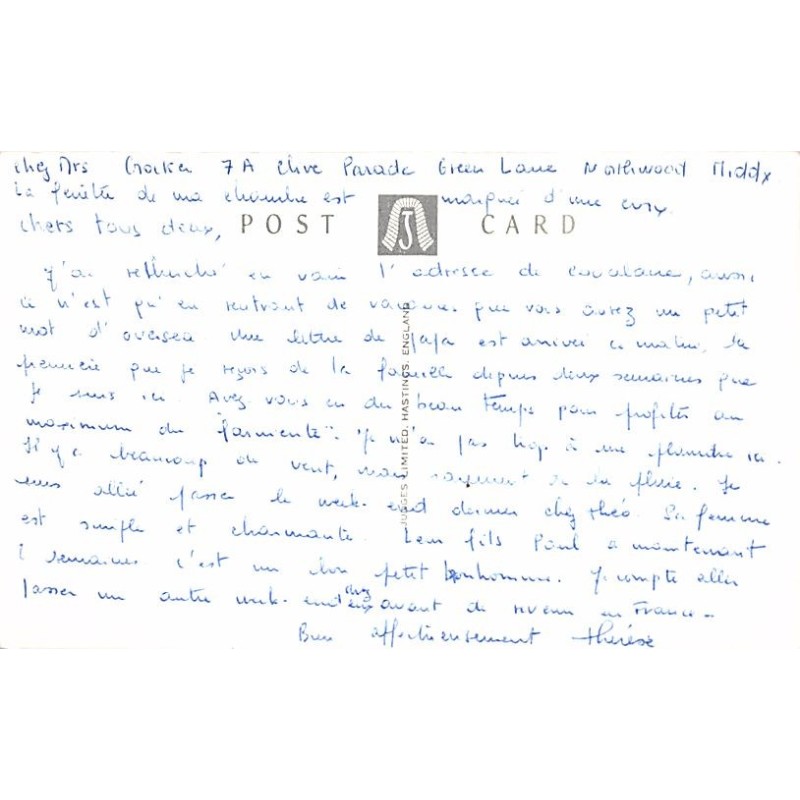 chez Mrs Crocker 7A Clive Parade Green Lane Northwood Middx
La fenêtre de ma chambre est marquée d'une croix.
POST CARD
Chers tous deux,
J'ai recherché en vain l'adresse de, aussi
ce n'est qu'en rentrant de vacances que vous aurez un petit
mot d'oversea. Une lettre de est arrivée ce matin, la
première que je reçois de la famille depuis deux semaines que
je suis ici. Avez vous eu du beau temps pour profiter au
maximum du "farniente". Je n'ai pas trop à me plaindre ici.
Il y a beaucoup de vent, mais rarement de la pluie. Je
suis allée passer le week-end dernier chez Théo. Sa femme
est simple et charmante. Leur fils Paul a maintenant
semaines c'est un bon petit bonhomme. Je compte aller
passer un autre week-end chez eux avant de revenir en France.
Bien affectueusement Thérèse
JUDGES LIMITED, HASTINGS, ENGLAND